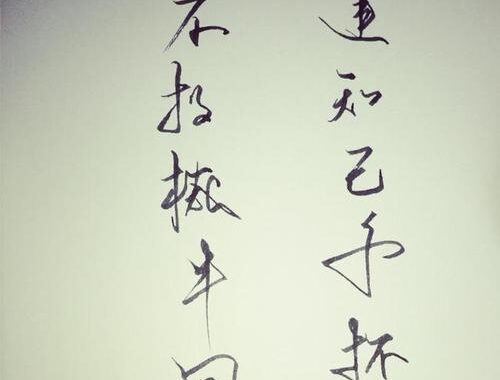 逢知己千杯
不投機半句